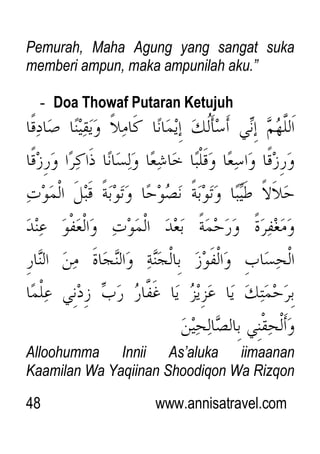 Pemurah, Maha Agung yang sangat suka
memberi ampun, maka ampunilah aku.”
- Doa Thowaf Putaran Ketujuh
اَللَّهُمَّ إِنِّي أَسْأَلُكَ إِيْمَانًا كَامِلاً وَيَقِيْنًا صَادِقًا
وَرِزْقًا وَاسِعًا وَقَلْبًا خَاشِعًا وَلِسَانًا ذَاكِرًا وَرِزْقًا
حَلاَلاً طَيِّبًا وَتَوْبَةً نَصُوْحًا وَتَوْبَةً قَبْلَ الْمَوْتِ
وَمَغْفِرَةً وَرَحْمَةً بَعْدَ الْمَوْتِ وَالْعَفْوَ عِنْدَ
الْحِسَابِ وَالْفَوْزَ بِالْجَنَّةِ وَالنَّجَاةَ مِنَ النَّارِ
بِرَحْمَتِكَ يَا عَزِيْزُ يَا غَفَّارُ رَبِّ زِدْنِي عِلْمًا
وَأَلْحِقْنِي بِالصَّالِحِيْنَ
Alloohumma Innii As’aluka iimaanan
Kaamilan Wa Yaqiinan Shoodiqon Wa Rizqon
48 www.annisatravel.com